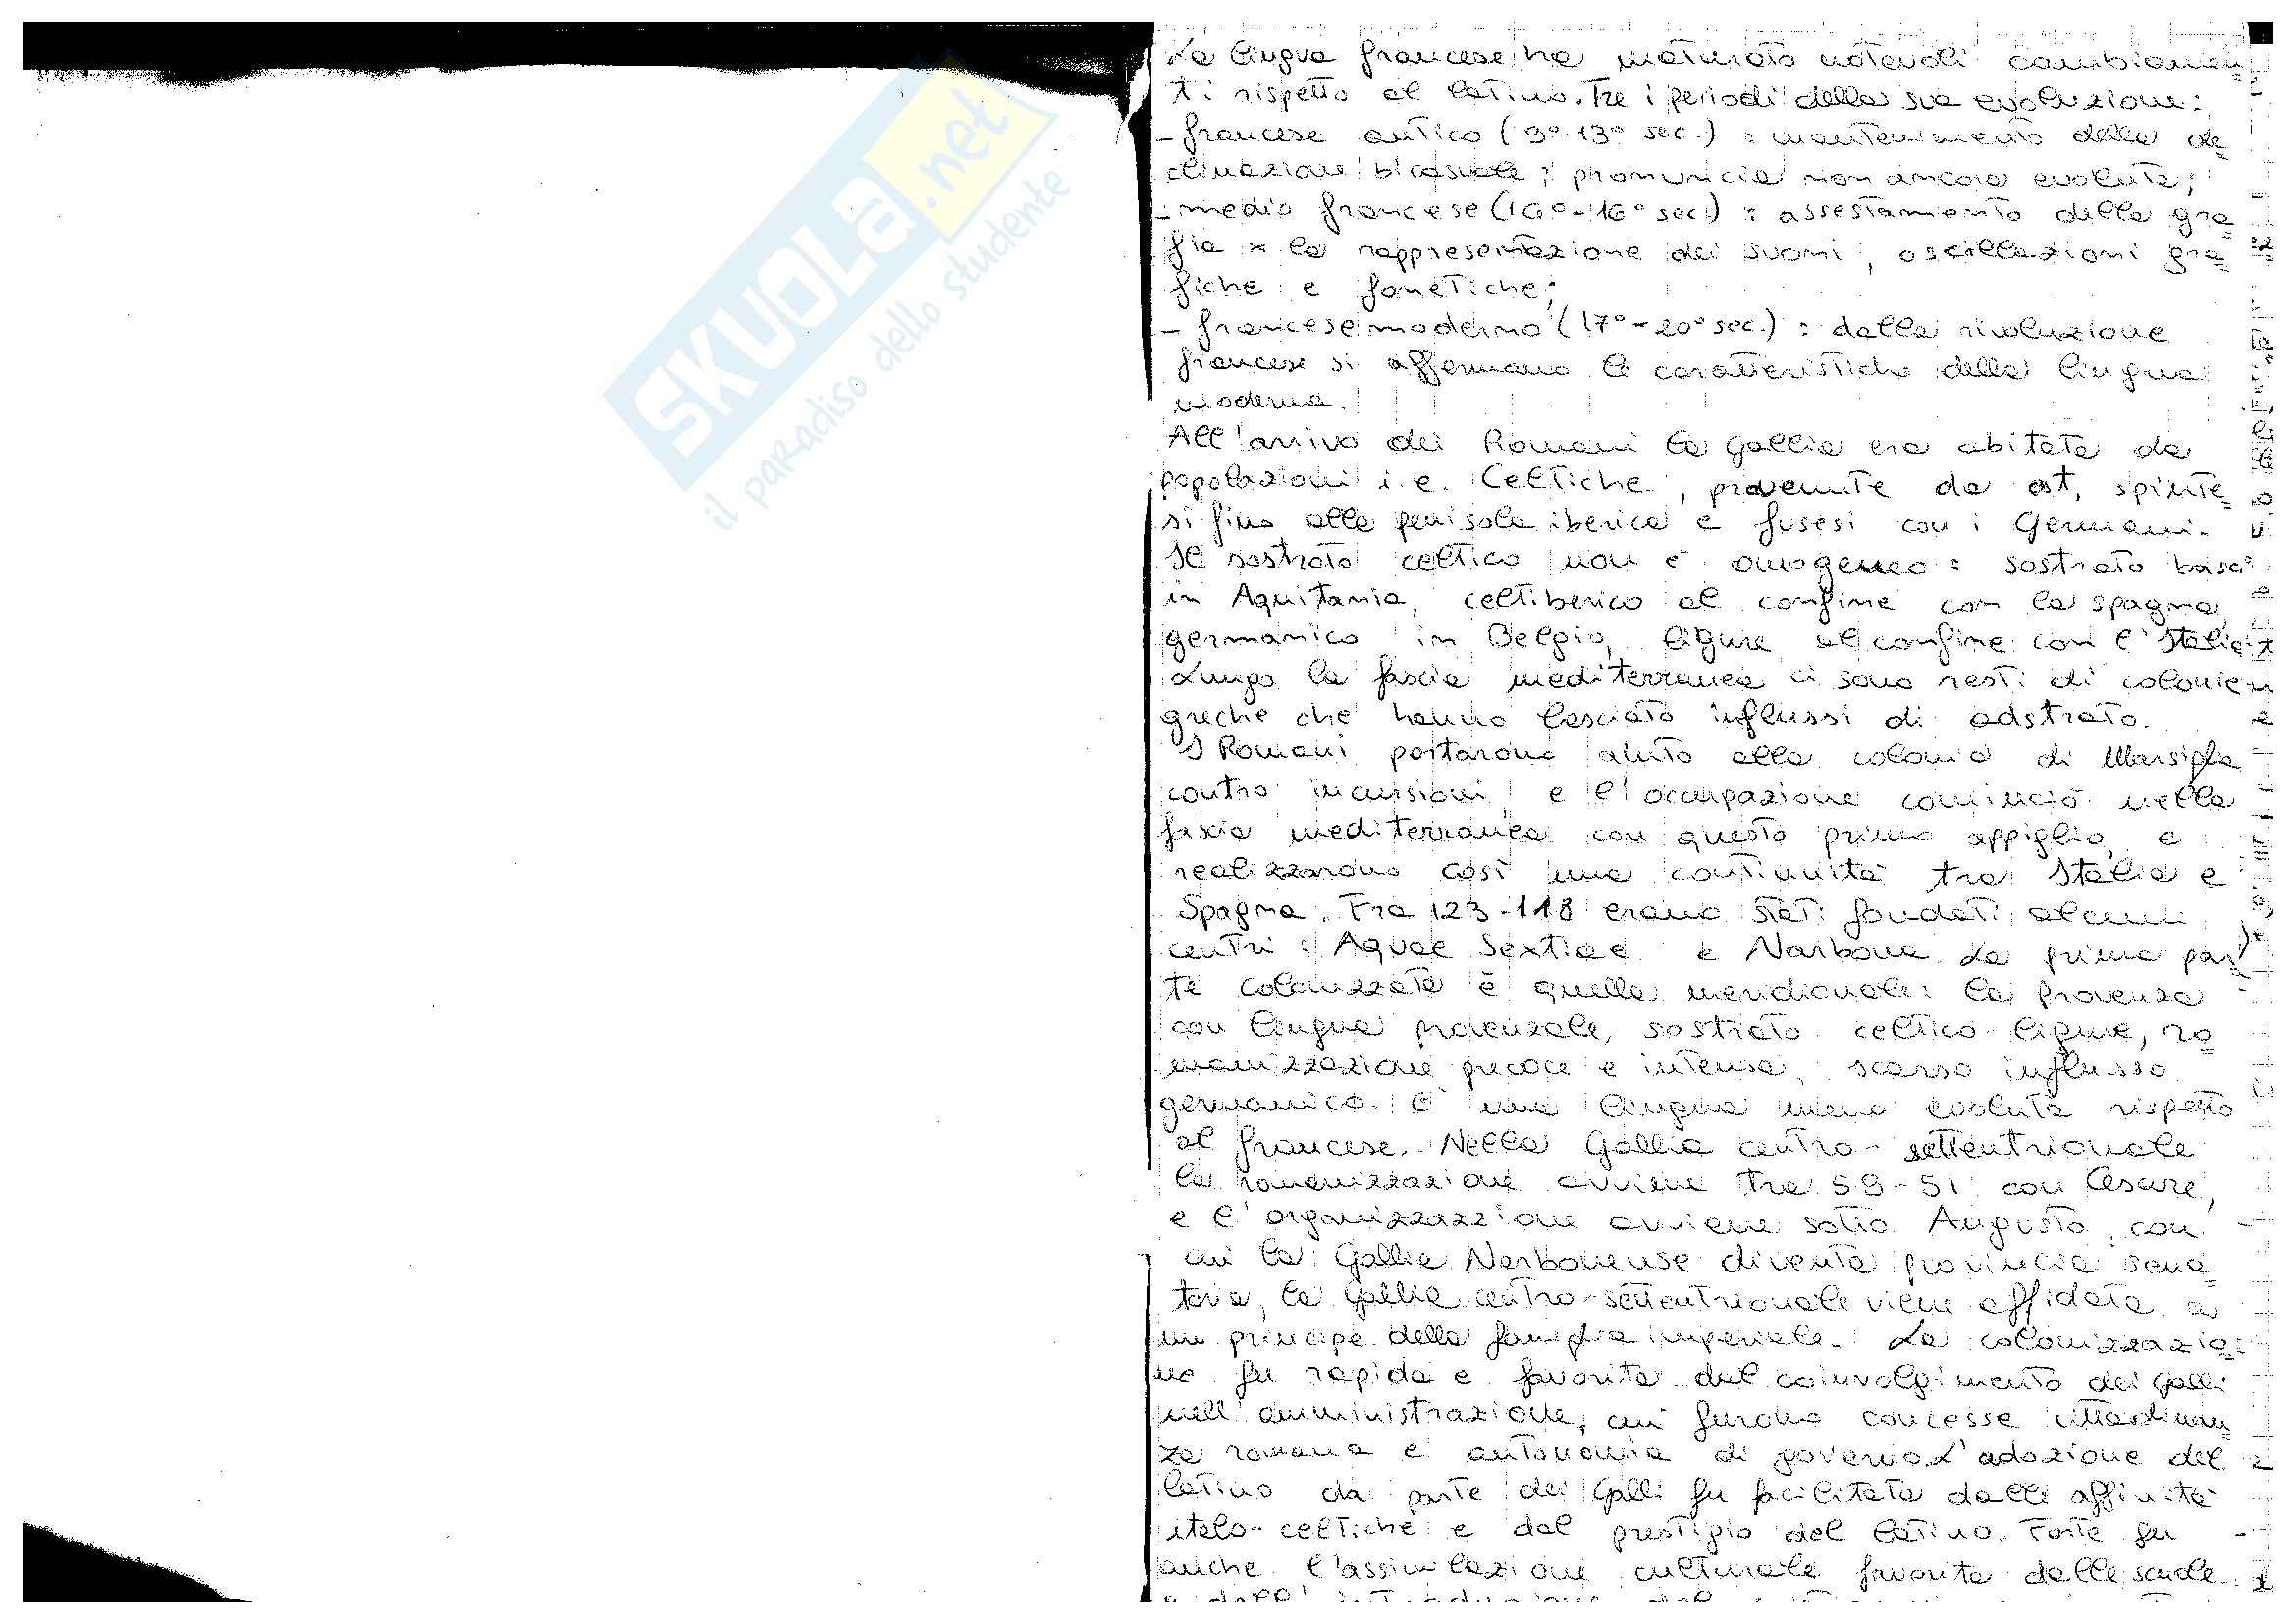 SKUOLA.net
il paradiso dello studente
La lingua francese ha maturato notevoli cambiamen
ti rispetto al latino. Tre i periodi della sua evoluzione:
- francese antico (9°-13° sec.) : mantenimento della de=
clinazione bicasuale; pronuncia non ancora evoluta;
- medio francese (16°-16° sec.) : assestamento della gra=
fia x la rappresentazione dei suoni, oscillazioni gra=
fiche e fonetiche;
- francese moderno (17°-20° sec.) : dalla rivoluzione
francese si affermano le caratteristiche della lingua
moderna.
All'arrivo dei Romani la Gallia era abitata da
popolazioni i.e. Celtiche, provenute da est, spinte=
si fino alla penisola iberica e fusesi con i Germani.
Il sostrato celtico non è omogeneo: sostrato basco
in Aquitania, celtiberico al confine con la Spagna,
germanico in Belgio, ligure al confine con l'Italia.
Lungo la fascia mediterranea ci sono resti di colonie
greche che hanno lasciato influssi di adstrato.
I Romani portarono aiuto alla colonia di Marsiglia
contro incursioni e l'occupazione cominciò nella
fascia mediterranea con questo primo appiglio, e
realizzarono così una continuità tra Italia e
Spagna. Fra 123-118 erano stati fondati alcuni
centri: Aquae Sextiae e Narbona. La prima par
te colonizzata è quella meridionale: la Provenza
con lingua provenzale, sostrato celtico-ligure, ro=
manizzazione precoce e intensa, scarso influsso
germanico. È una lingua meno evoluta rispetto
al francese. Nella Gallia centro-settentrionale
la romanizzazione avviene tra 58-51 con Cesare,
e l'organizzazzione avviene sotto Augusto, con
cui la Gallia Narbonense diventa provincia sena=
toria, la Gallia centro-settentrionale viene affidata a
un principe della famiglia imperiale. La colonizzazio=
ne fu rapida e favorita dal coinvolgimento dei Galli
nell'amministrazione, cui furono concesse cittadinan=
za romana e autonomia di governo. L'adozione del
latino da parte dei Galli fu facilitata dalle affinità
italo-celtiche e dal prestigio del latino. Forte fu
anche l'assimilazione culturale favorita dalle scuole